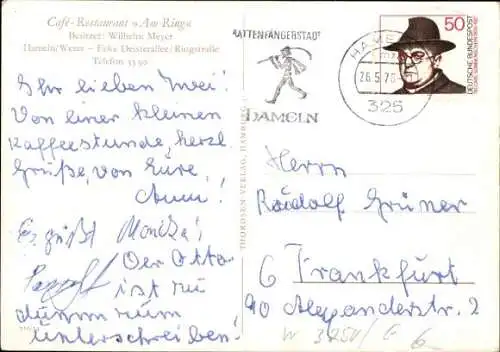 Café-Restaurant »Am Ring«
Besitzer: Wilhelm Meyer
Hameln/Weser - Ecke Deisterallee/Ringstraße
Telefon 33 90
Ihr lieben Zwei!
Von einer kleinen
Kaffeestunde, herzl.
Grüße, von Eure,
Anni!
Es grüßt Monika!
Der Otto
ist zu
dumm zum
unterschreiben!
THORDSEN-VERLAG, HAMBURG
RATTENFÄNGERSTADT
HAMELN
HAMELN
26.5.76
325
50
DEUTSCHE BUNDESPOST
Herrn
Rudolf Grüner
6 Frankfurt
90 Alexanderstr. 2